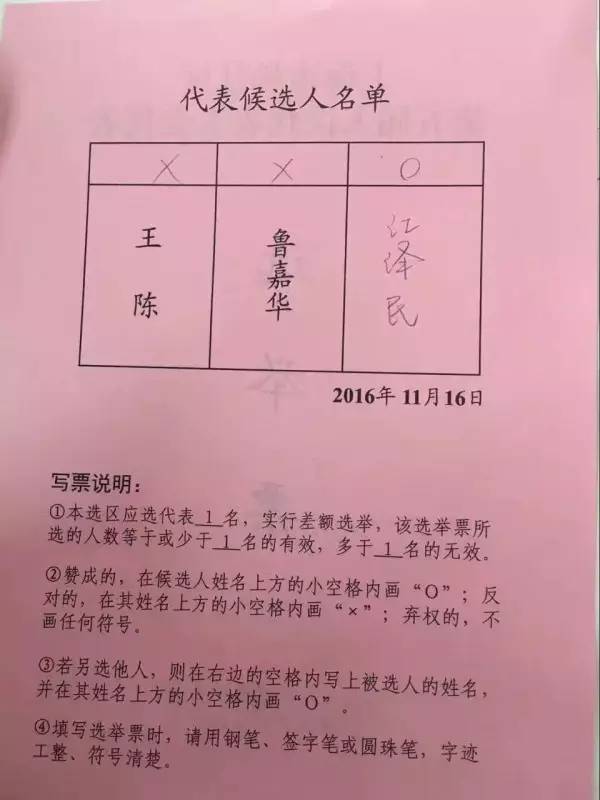 代表候选人名单
X X O
王陈
鲁嘉华
江泽民
2016年 11月16日
写票说明：
①本选区应选代表 1 名，实行差额选举，该选举票所
选的人数等于或少于 1 名的有效，多于 1 名的无效。
②赞成的，在候选人姓名上方的小空格内画“O”；反
对的，在其姓名上方的小空格内画“×”；弃权的，不
画任何符号。
③若另选他人，则在右边的空格内写上被选人的姓名，
并在其姓名上方的小空格内画“O”。
④填写选举票时，请用钢笔、签字笔或圆珠笔，字迹
工整、符号清楚。